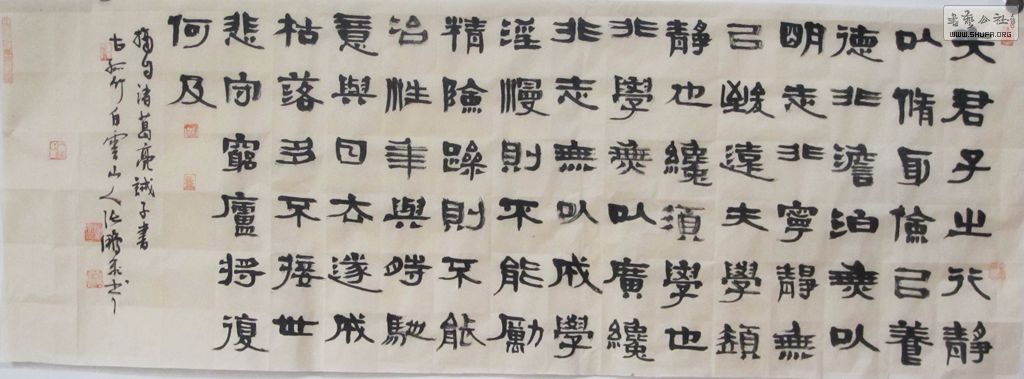 夫君子之行靜
以脩身儉已養
德非澹泊無以
明志非寧靜無
已致遠夫學須
靜也纔須學也
非學無以廣纔
非志無以成學
淫漫則不能勵
精險躁則不能
治性年與時馳
意與日去遂成
枯落多不接世
悲守窮廬將復
何及
摘句诸葛亮誡子書
古孤竹白雲山人
书艺公社
WWW.SHUFA.ORG